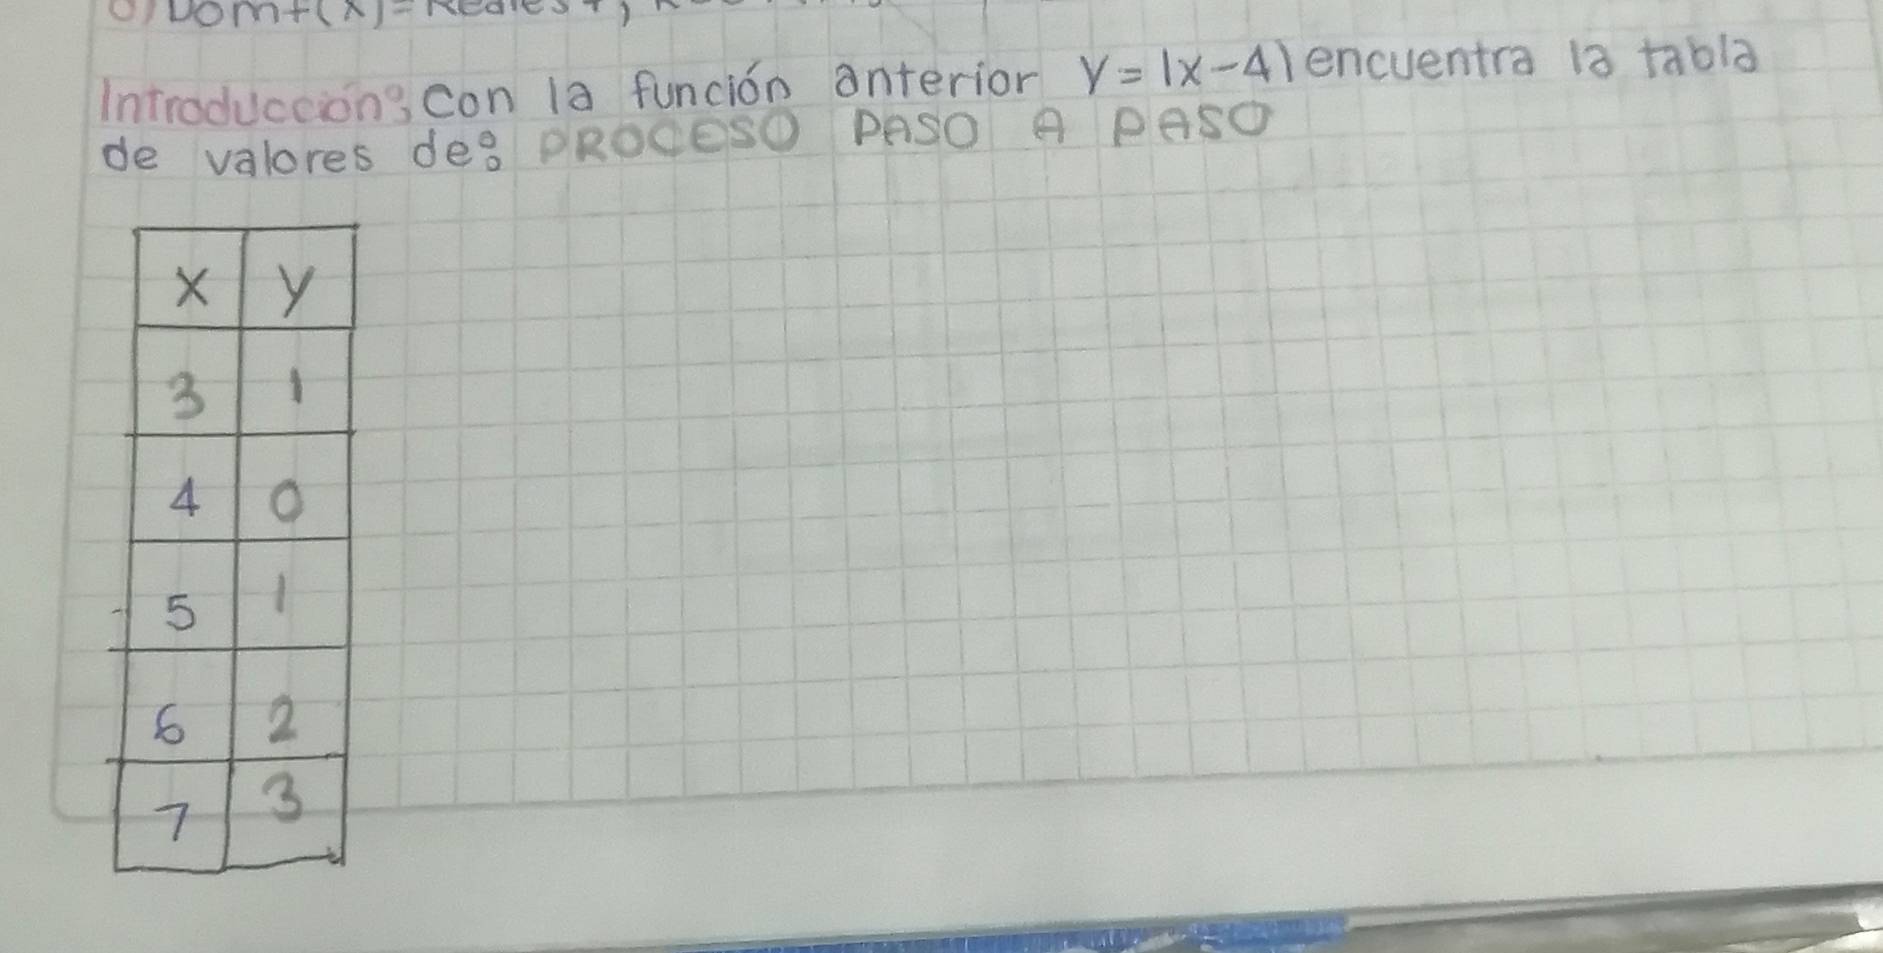 Domf(x)=Reales+,
Introducción: Con la función anterior y=|x-4| encuentra la tabla
de valores de: PROCESO PASO A PASO
x y
3 1
4 0
5 1
6 2
7 3